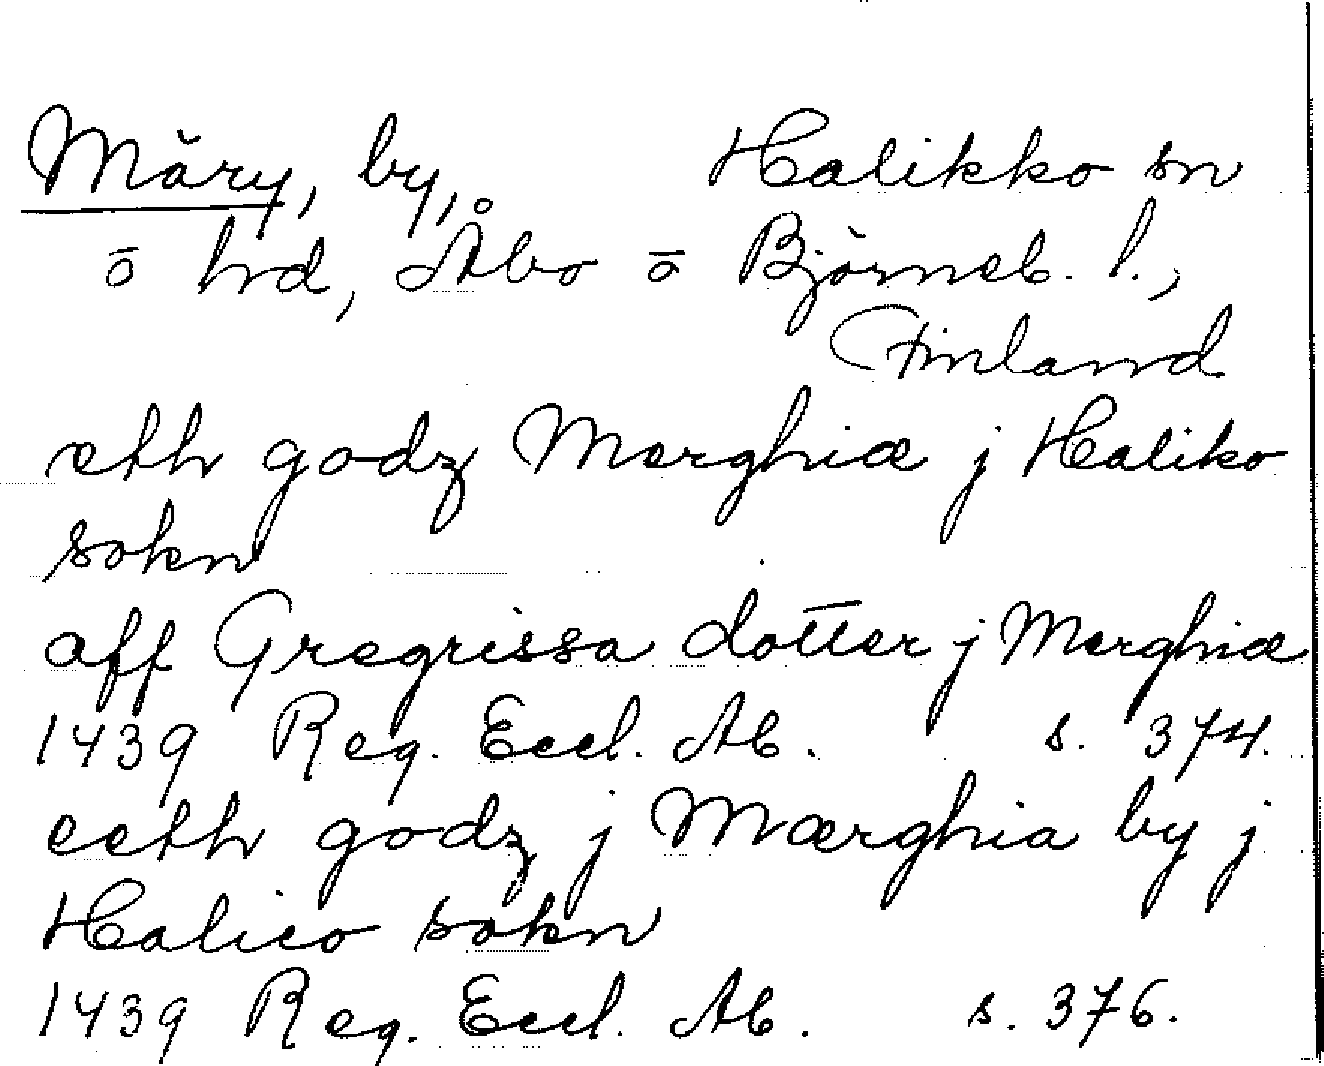 Märy, by, Halikko sn
o hrd, Åbo o Björneb. l.,
Finland
eth godz Merghiæ j Haliko
sokn
aff Gregrissa dotter j Merghiæ
1439 Reg. Eccl. Ab. s. 374.
eeth godz j Mærghia by j
Halico sokn
1439 Reg. Eccl. Ab. s. 376.